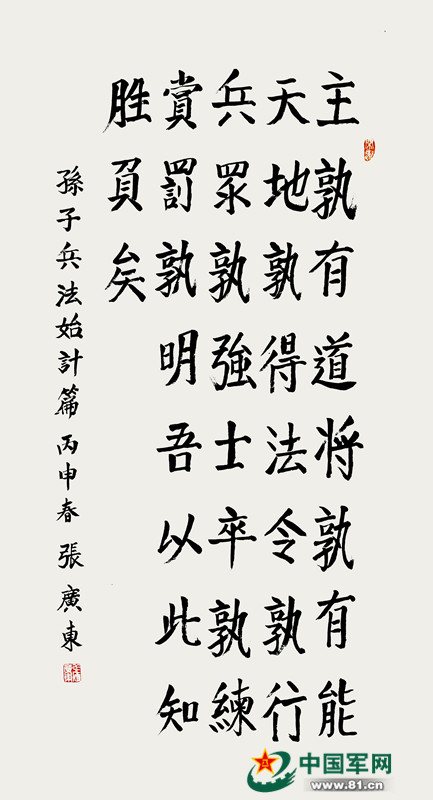 主孰有道将孰有能
天地孰得法令孰行
兵眾孰強士卒孰練
賞罰孰明吾以此知
胜負矣
孫子兵法始計篇丙申春張廣東
中国军网
www.81.cn